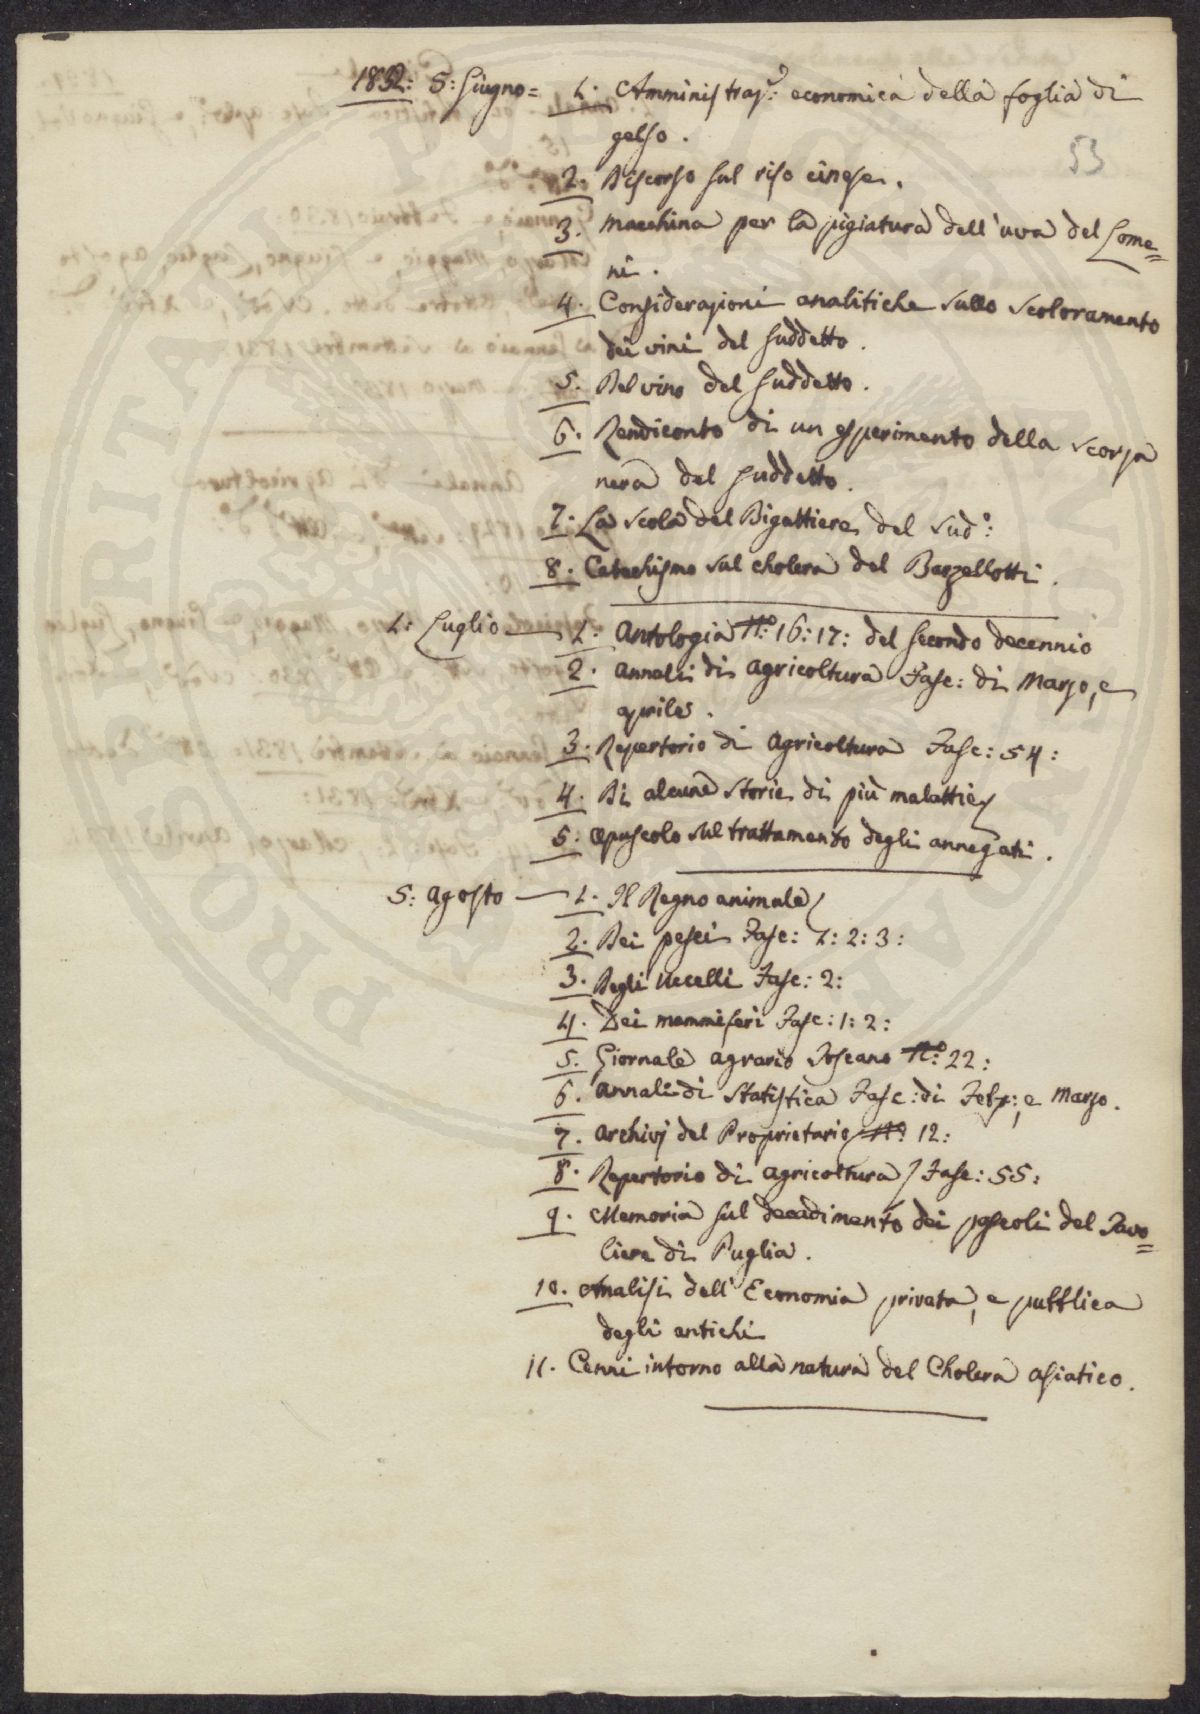 1832: 5: Giugno = 1. Amministraz.e economica della foglia di
gelso.
53
2. Discorso sul riso cinese.
3. Macchina per la pigiatura dell'uva del Lome=
ni.
4. Considerazioni analitiche sullo scoloramento
dei vini del suddetto.
5. Del vino del suddetto.
6. Rendiconto di un esperimento della scorza
nera del suddetto.
7. La scola del Bigattiere del sud.o:
8. Catechismo sul cholera del Barzellotti.
1: Luglio — 1. Antologia N.o: 16: 17: del secondo decennio
2. Annali di agricoltura Fasc: di Marzo, e
aprile.
3. Repertorio di agricoltura Fasc: 54:
4. Di alcune storie di più malattie
5: Opuscolo sul trattamento degli annegati.
5: Agosto — 1. Il Regno animale
2. Dei pesci Fasc: 1: 2: 3:
3. Degli uccelli Fasc: 2:
4. Dei mammiferi Fasc: 1: 2:
5. Giornale agrario Toscano N.o: 22:
6. Annali di Statistica Fasc: di Feb.: e Marzo.
7. Archivj del Proprietario N.o 12:
8. Repertorio di agricoltura Fasc: 55:
9. Memoria sul decadimento dei pascoli del Tavo=
liere di Puglia.
10. Analisi dell'Economia privata, e pubblica
degli antichi
11. Cenni intorno alla natura del Cholera asiatico.